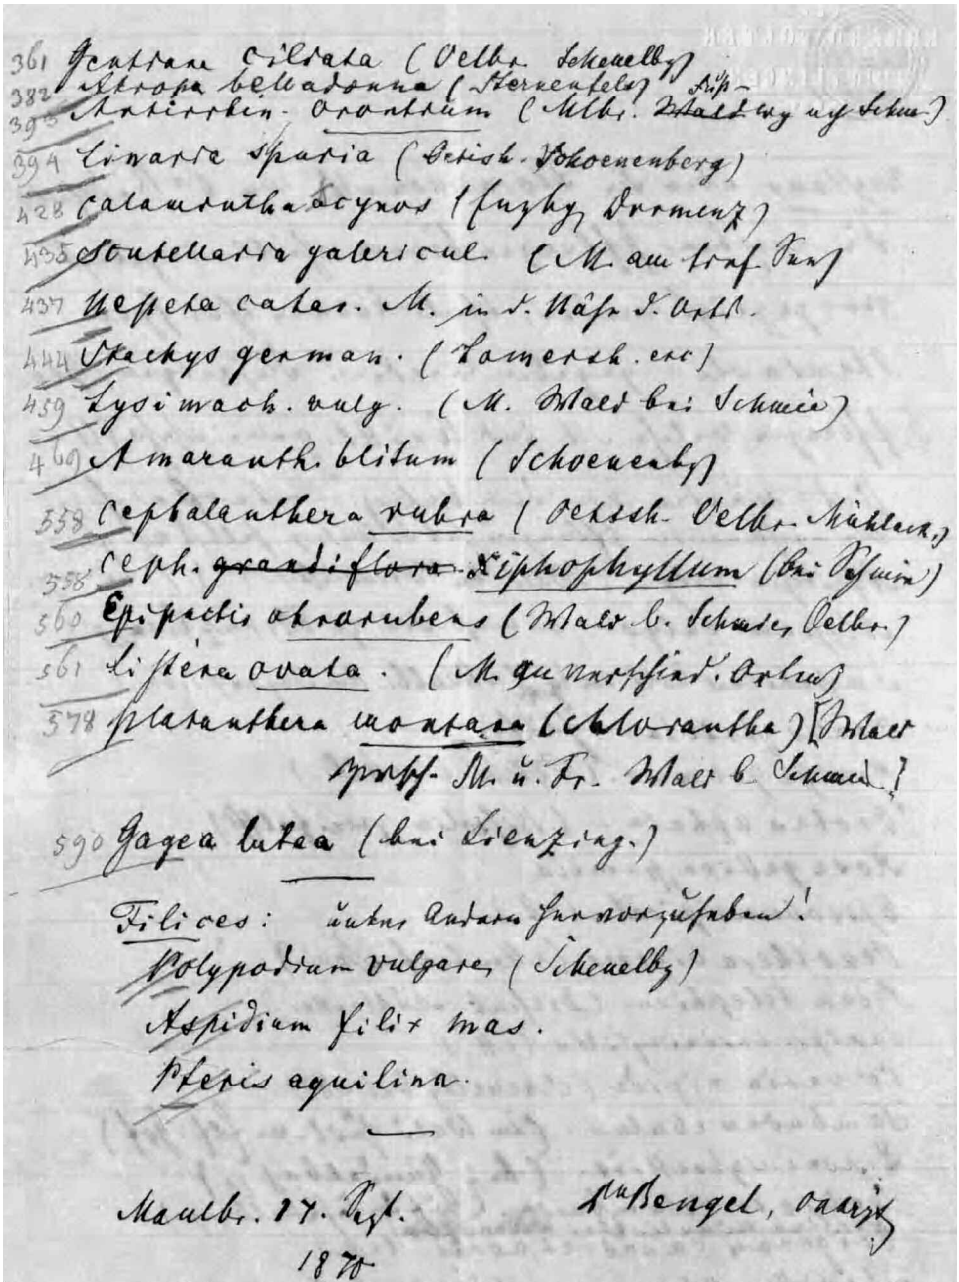 361 Gentiana ciliata (Oelbr. Scheuelbg)
382 Atropa belladonna (Sternenfels)
393 Antirrhin. orontium (Mlbr. Schm.)
394 Linaria spuria (Oetish. Schoenenberg)
428 Calamintha Acynos (Enzbg, Durmenz)
435 Scutellaria galericul. (M. am tief. See)
437 Nepeta catar. M. in d. Nähe d. Orts.
444 Stachys german. (Lomersh. etc)
459 Lysimach. vulg. (M. Wald bei Schmie)
469 Amaranth. blitum (Schoenenbg)
558 Cephalanthera rubra (Oetish. Oelbr. Mühlack.)
558 Ceph. grandiflora Xiphophyllum (bei Schmie)
560 Epipactis atrorubens (Wald b. Schmie, Oelbr.)
561 Listera ovata. (M. an verschied. Orten)
578 Platanthera montana (chlorantha) [Wald
zwisch. M. u. Fr. Wald b. Schmie]
590 Gagea lutea (bei Lienzing.)
Filices: unter Andern hervorzuheben!
Polypodium vulgare, (Scheuelbg)
Aspidium filix mas.
Pteris aquilina.
Maulbr. 17. Sept. Dr Bengel, Oaarzt
1870